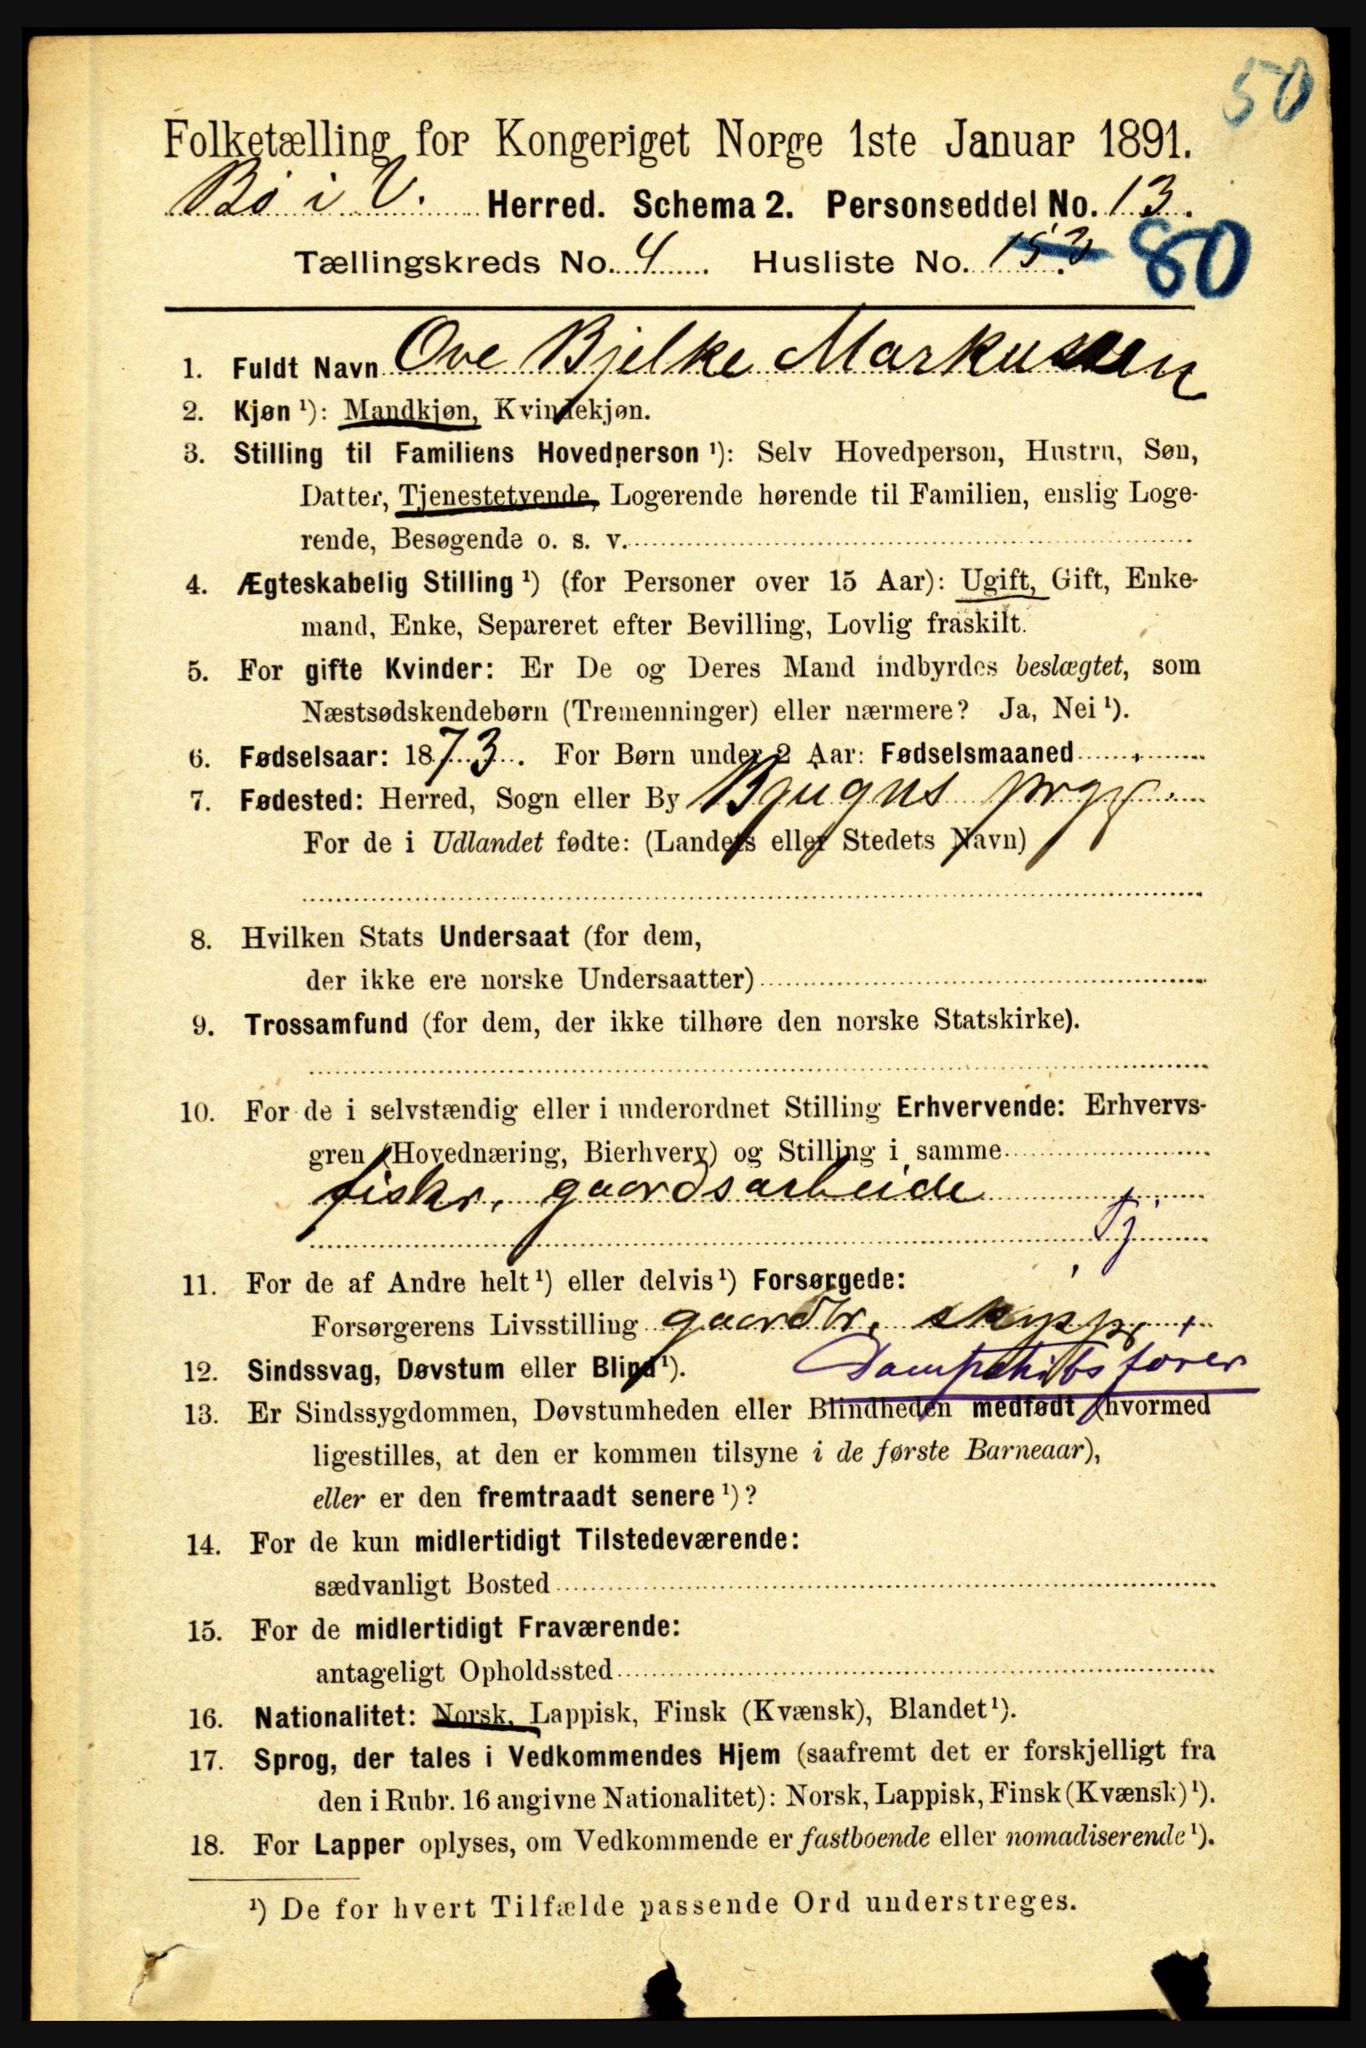 50
Folketælling for Kongeriget Norge 1ste Januar 1891.
Bø i V. Herred. Schema 2. Personseddel No. 13.
Tællingskreds No. 4 Husliste No. 80
1. Fuldt Navn Ove Bjelke Markussen
2. Kjøn ¹): Mandkjøn, Kvindekjøn.
3. Stilling til Familiens Hovedperson ¹): Selv Hovedperson, Hustru, Søn,
Datter, Tjenestetyende, Logerende hørende til Familien, enslig Loge-
rende, Besøgende o. s. v.
4. Ægteskabelig Stilling ¹) (for Personer over 15 Aar): Ugift, Gift, Enke-
mand, Enke, Separeret efter Bevilling, Lovlig fraskilt.
5. For gifte Kvinder: Er De og Deres Mand indbyrdes beslægtet, som
Næstsødskendebørn (Tremenninger) eller nærmere? Ja, Nei ¹).
6. Fødselsaar: 1873. For Børn under 2 Aar: Fødselsmaaned
7. Fødested: Herred, Sogn eller By Bjugns prgj.
For de i Udlandet fødte: (Landets eller Stedets Navn)
8. Hvilken Stats Undersaat (for dem,
der ikke ere norske Undersaatter)
9. Trossamfund (for dem, der ikke tilhøre den norske Statskirke).
10. For de i selvstændig eller i underordnet Stilling Erhvervende: Erhvervs-
gren (Hovednæring, Bierhverv) og Stilling i samme
fiskr, gaardsarbeide
Tj.
11. For de af Andre helt ¹) eller delvis ¹) Forsørgede:
Forsørgerens Livsstilling gaardbr,
12. Sindssvag, Døvstum eller Blind ¹). Dampskibsfører
13. Er Sindssygdommen, Døvstumheden eller Blindheden medfødt (hvormed
ligestilles, at den er kommen tilsyne i de første Barneaar),
eller er den fremtraadt senere ¹)?
14. For de kun midlertidigt Tilstedeværende:
sædvanligt Bosted
15. For de midlertidigt Fraværende:
antageligt Opholdssted
16. Nationalitet: Norsk, Lappisk, Finsk (Kvænsk), Blandet ¹).
17. Sprog, der tales i Vedkommendes Hjem (saafremt det er forskjelligt fra
den i Rubr. 16 angivne Nationalitet): Norsk, Lappisk, Finsk (Kvænsk) ¹).
18. For Lapper oplyses, om Vedkommende er fastboende eller nomadiserende ¹).
¹) De for hvert Tilfælde passende Ord understreges.